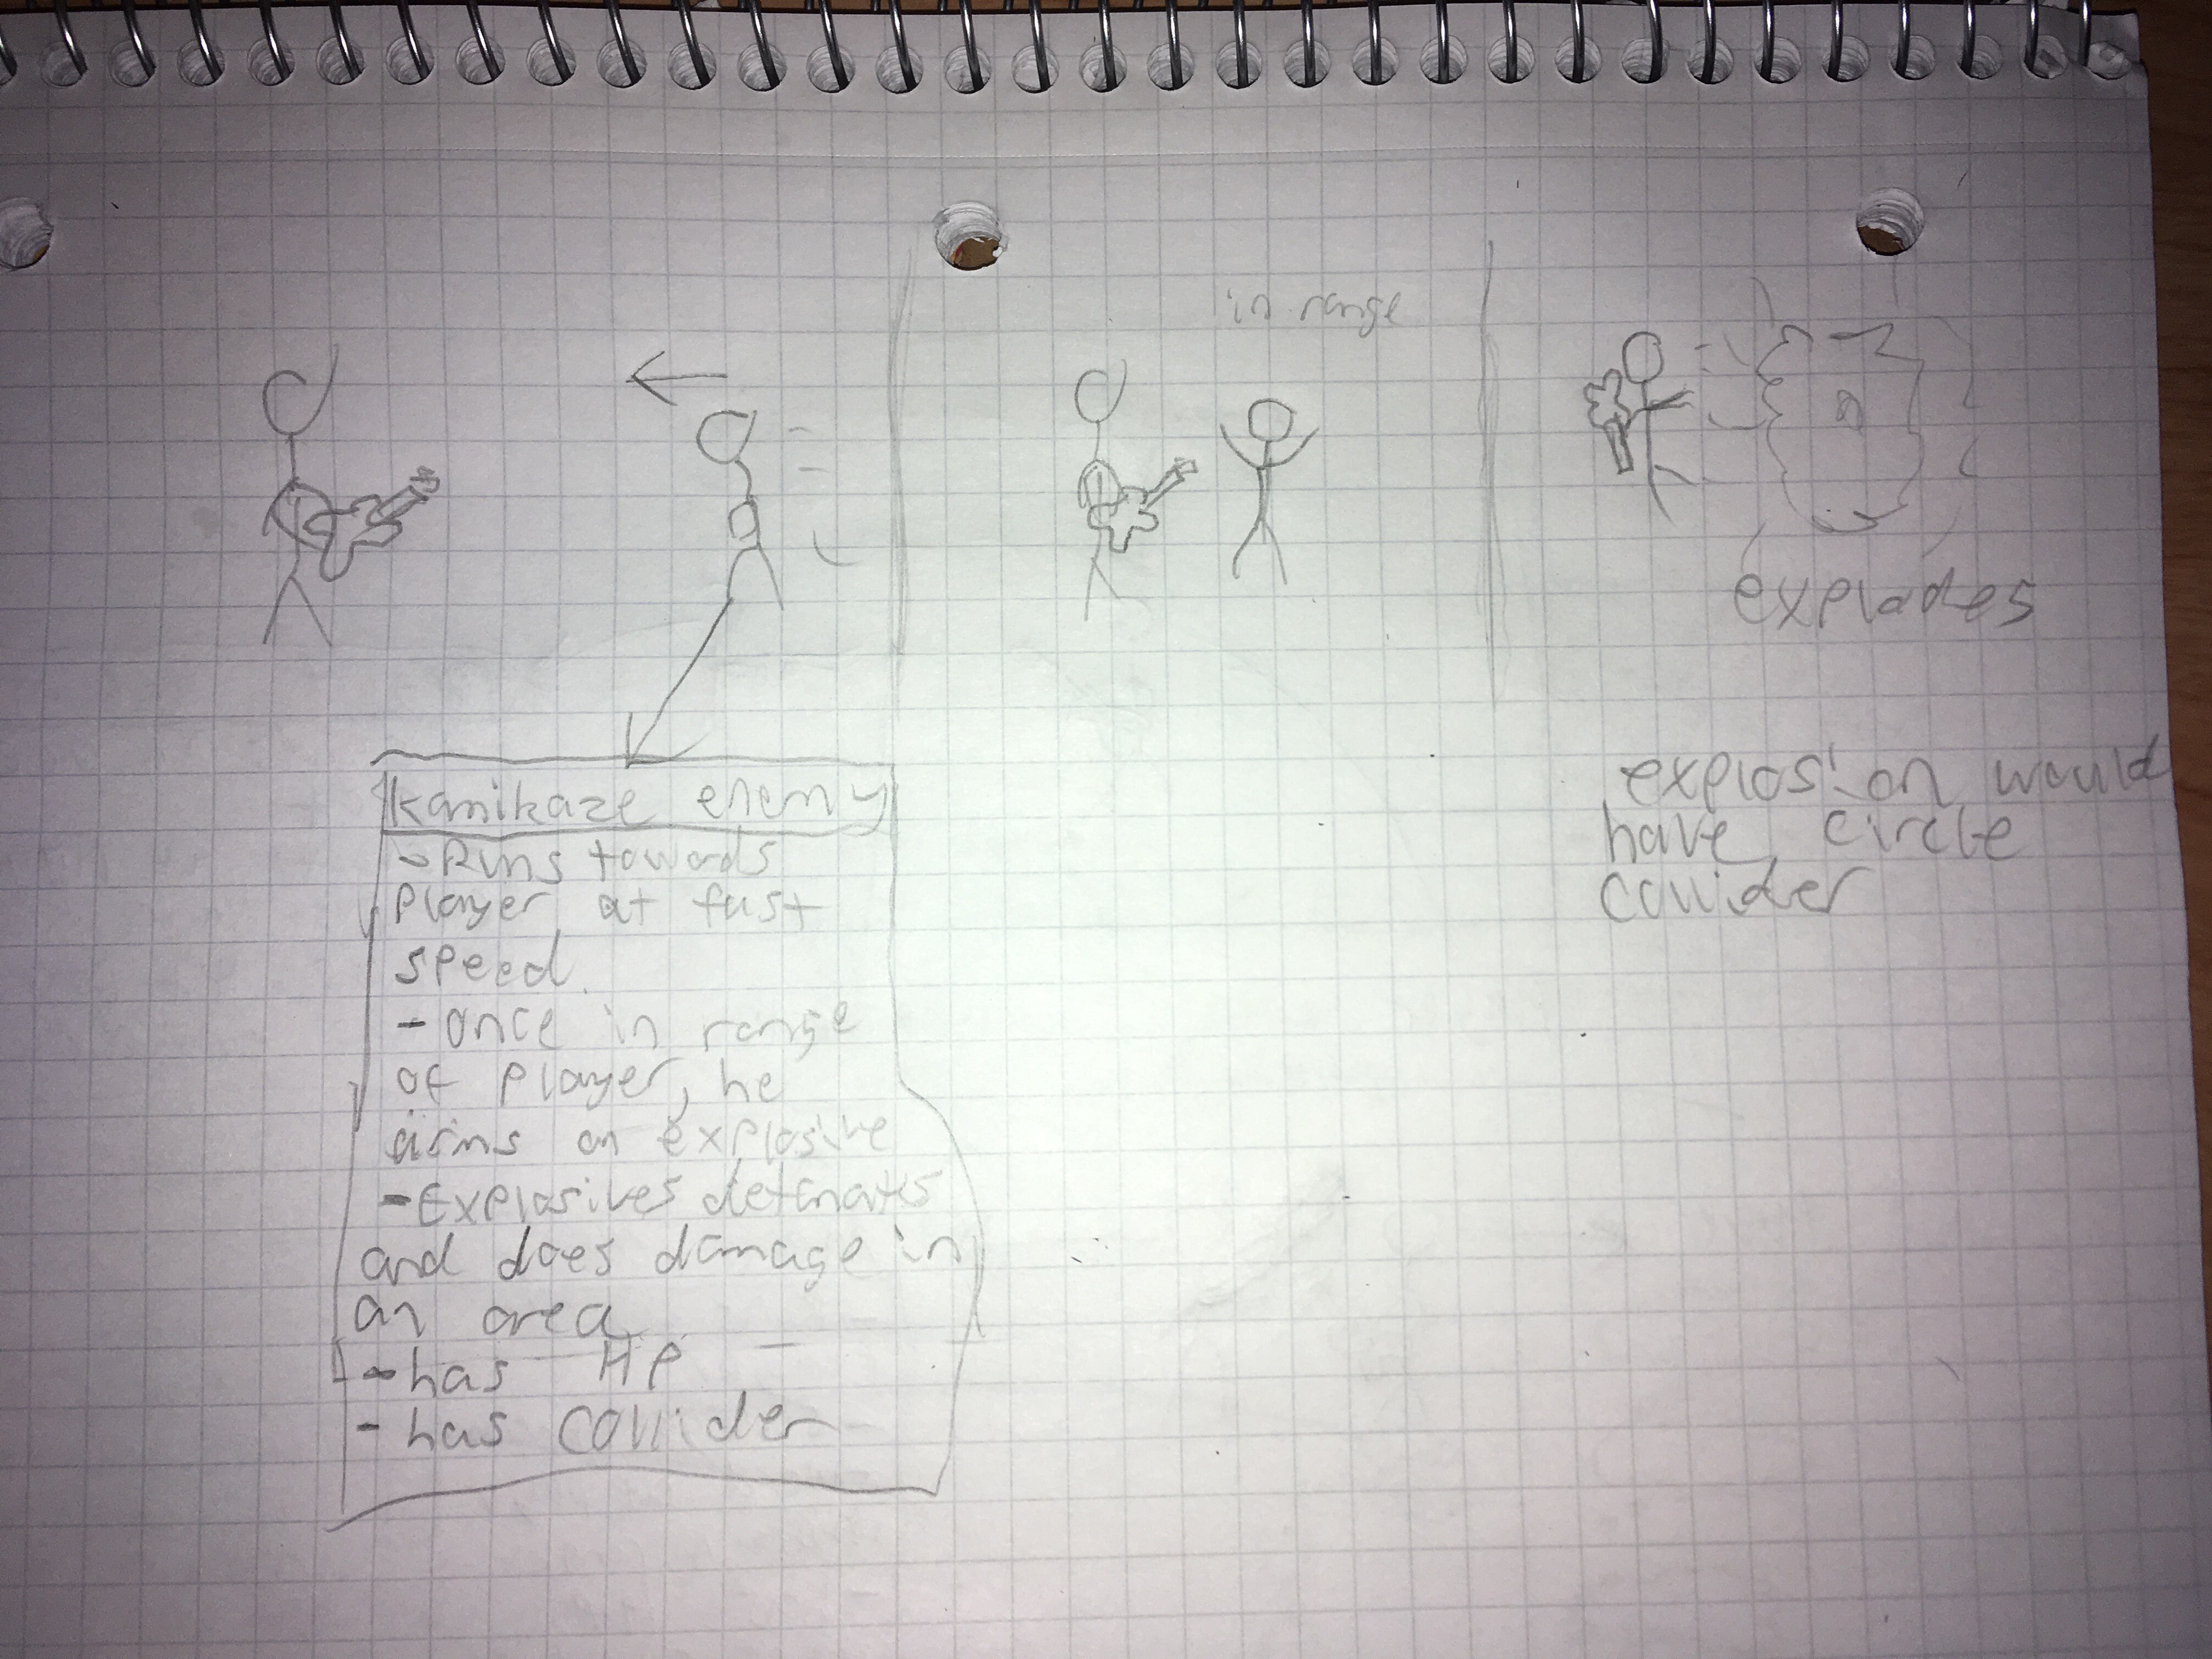 in range
explodes
kamikaze enemy
- Runs towards
player at fast
speed.
- once in range
of player, he
arms an explosive
- Explosives detonates
and does damage in
an area
- has HP
- has collider
explosion would
have circle
collider